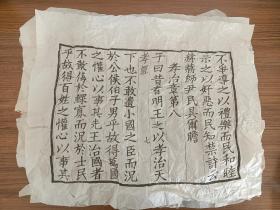 不爭導之以禮樂而民和睦
示之以好惡而民知禁詩云
赫赫師尹民具爾瞻
孝治章第八
子曰昔者明王之以孝治天
孝經 七
下也不敢遺小國之臣而況
於公侯伯子男乎故得萬國
之懽心以事其先王治國者
不敢侮於鰥寡而況於士民
乎故得百姓之懽心以事其